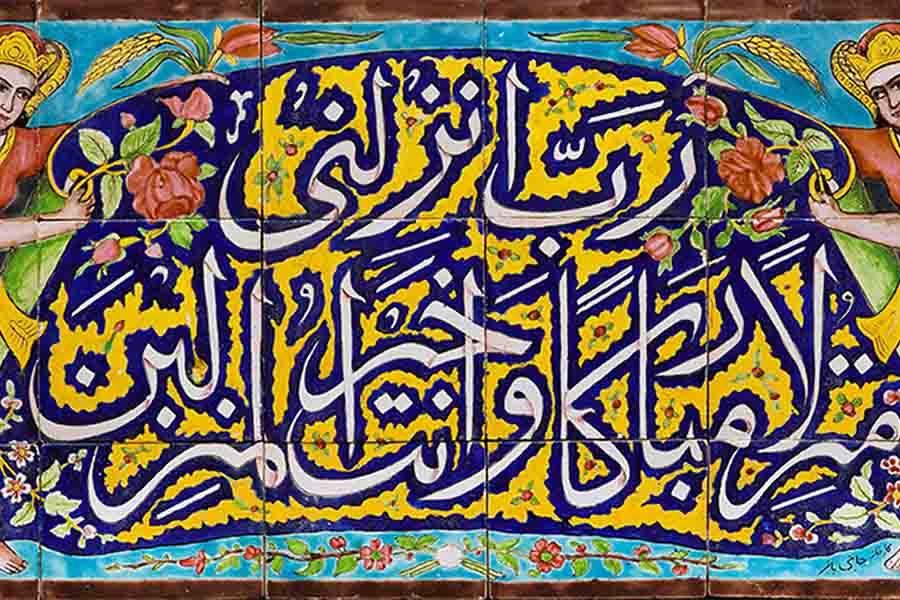 ربّ انزلنی
منزلاً مبارکاً وانت خیر المنزلین